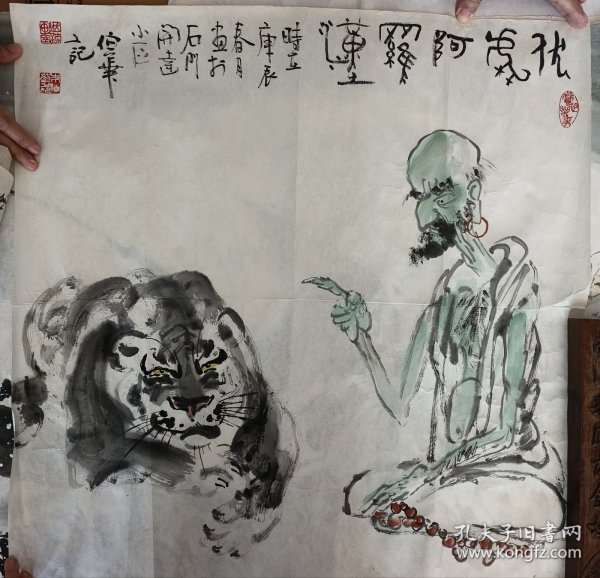 伏虎阿羅漢
時在
庚辰
春月
畫於
石門
開達
小區
信華
記
孔夫子旧书网
www.kongfz.com